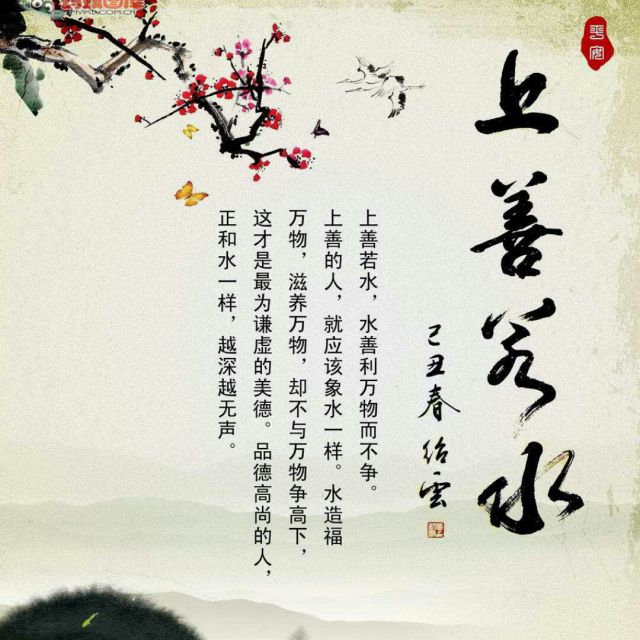 上善若水
己丑春绍雲
上善若水，水善利万物而不争。
上善的人，就应该象水一样。水造福
万物，滋养万物，却不与万物争高下，
这才是最为谦虚的美德。品德高尚的人，
正和水一样，越深越无声。